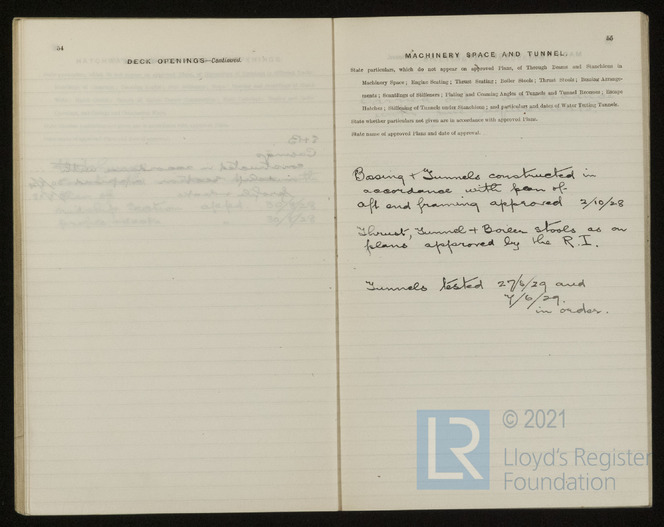 54
DECK OPENINGS—Continued.
55
MACHINERY SPACE AND TUNNEL.
State particulars, which do not appear on approved Plans, of Through Beams and Stanchions in
Machinery Space; Engine Seating; Thrust Seating; Boiler Stools; Thrust Stools; Bossing Arrange-
ments; Scantlings of Stiffeners; Plating and Crowning Angles of Tunnels and Tunnel Recesses; Escape
Hatches; Stiffening of Tunnels under Stanchions; and particulars and dates of Water Testing Tunnels.
State whether particulars not given are in accordance with approved Plans.
State name of approved Plans and date of approval.
Bossing + Tunnels constructed in
accordance with plan of
aft end framing approved 2/10/28
Thrust, Tunnel + Boiler stools as on
plans approved by the R.I.
Tunnels tested 27/5/29 and
7/6/29.
in order.
LR
© 2021
Lloyd's Register
Foundation